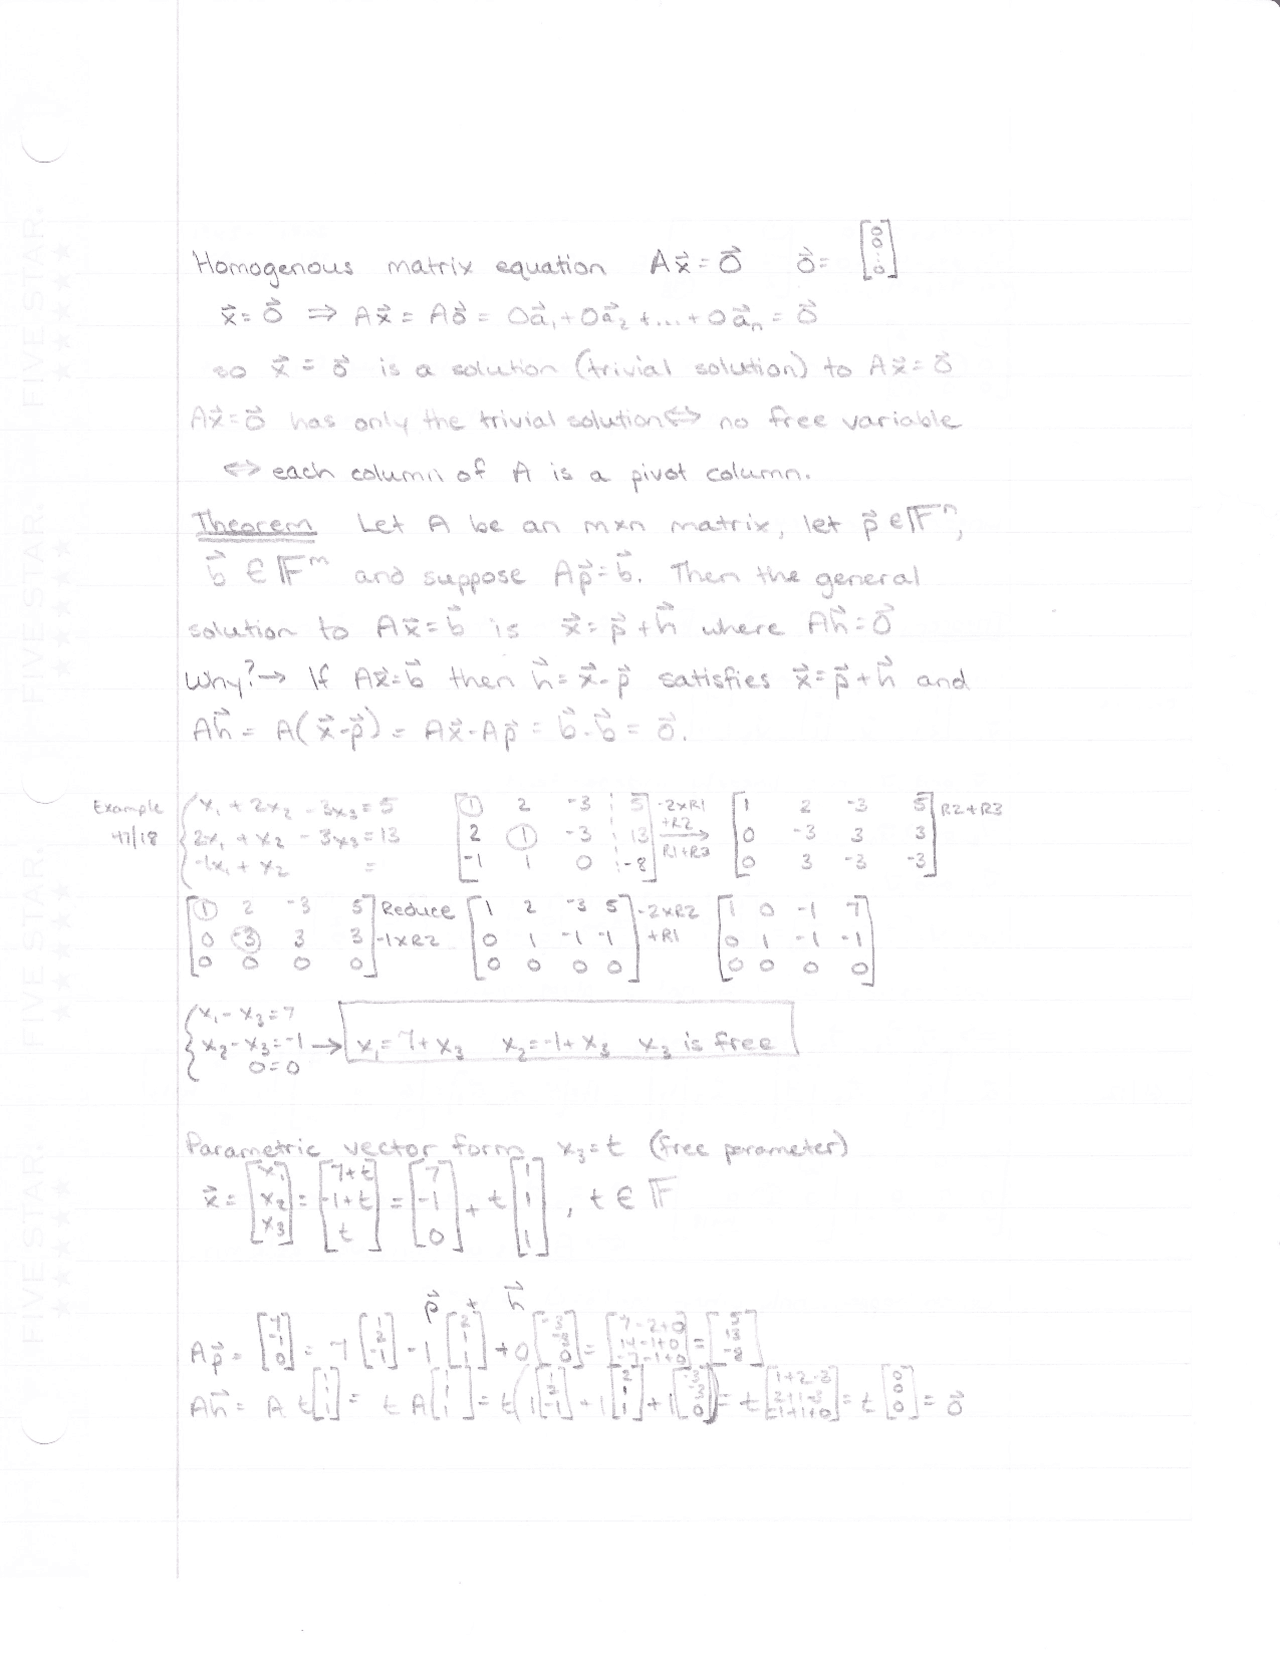 Homogenous matrix equation Ax⃗=0⃗ 0⃗= [0 0 ⋮ 0]
x⃗=0⃗ ⇒ Ax⃗ = A0⃗ = 0a⃗₁+0a⃗₂+...+0a⃗ₙ = 0⃗
so x⃗ = 0⃗ is a solution (trivial solution) to Ax⃗=0⃗
Ax⃗=0⃗ has only the trivial solution ⇔ no free variable
⇔ each column of A is a pivot column.
Theorem Let A be an m×n matrix, let p⃗ ∈ 𝔽ⁿ,
b⃗ ∈ 𝔽ᵐ and suppose Ap⃗=b⃗. Then the general
solution to Ax⃗=b⃗ is x⃗=p⃗+h⃗ where Ah⃗=0⃗
Why?→ If Ax⃗=b⃗ then h⃗=x⃗-p⃗ satisfies x⃗=p⃗+h⃗ and
Ah⃗ = A(x⃗-p⃗) = Ax⃗-Ap⃗ = b⃗-b⃗ = 0⃗.
Example x₁ + 2x₂ - 3x₃ = 5 [1 2 -3 5 -2×R1 [1 2 -3 5] R2+R3
47/18 2x₁ + x₂ - 3x₃ = 13 2 1 -3 13 +R2 → R1+R3 0 -3 3 3
-1x₁ + x₂ = -1 1 0 -8] 0 3 -3 -3]
[1 2 -3 5] Reduce [1 2 -3 5] -2×R2 [1 0 -1 7]
0 -3 3 3 -1×R2 0 1 -1 -1 +R1 0 1 -1 -1
0 0 0 0 0 0 0 0 0 0 0 0
x₁ - x₃ = 7
x₂ - x₃ = -1 → x₁ = 7+x₃ x₂ = -1+x₃ x₃ is free
0=0
Parametric vector form x₃=t (free parameter)
x⃗ = [x₁ x₂ x₃] = [7+t -1+t t] = [7 -1 0] + t [1 1 1], t ∈ 𝔽
p⃗ + h⃗
Ap⃗ = [7 -1 0] = 7 [1 2 -1] -1 [2 1 1] + 0 [-3 -3 0] = [7-2+0 14-1+0 -7-1+0] = [5 13 -8]
Ah⃗ = A t [1 1 1] = t A [1 1 1] = t (1 [1 2 -1] + 1 [2 1 1] + 1 [-3 -3 0]) = t [1+2-3 2+1-3 -1+1+0] = t [0 0 0] = 0⃗
FIVE STAR.
FIVE STAR.
FIVE STAR.
FIVE STAR.